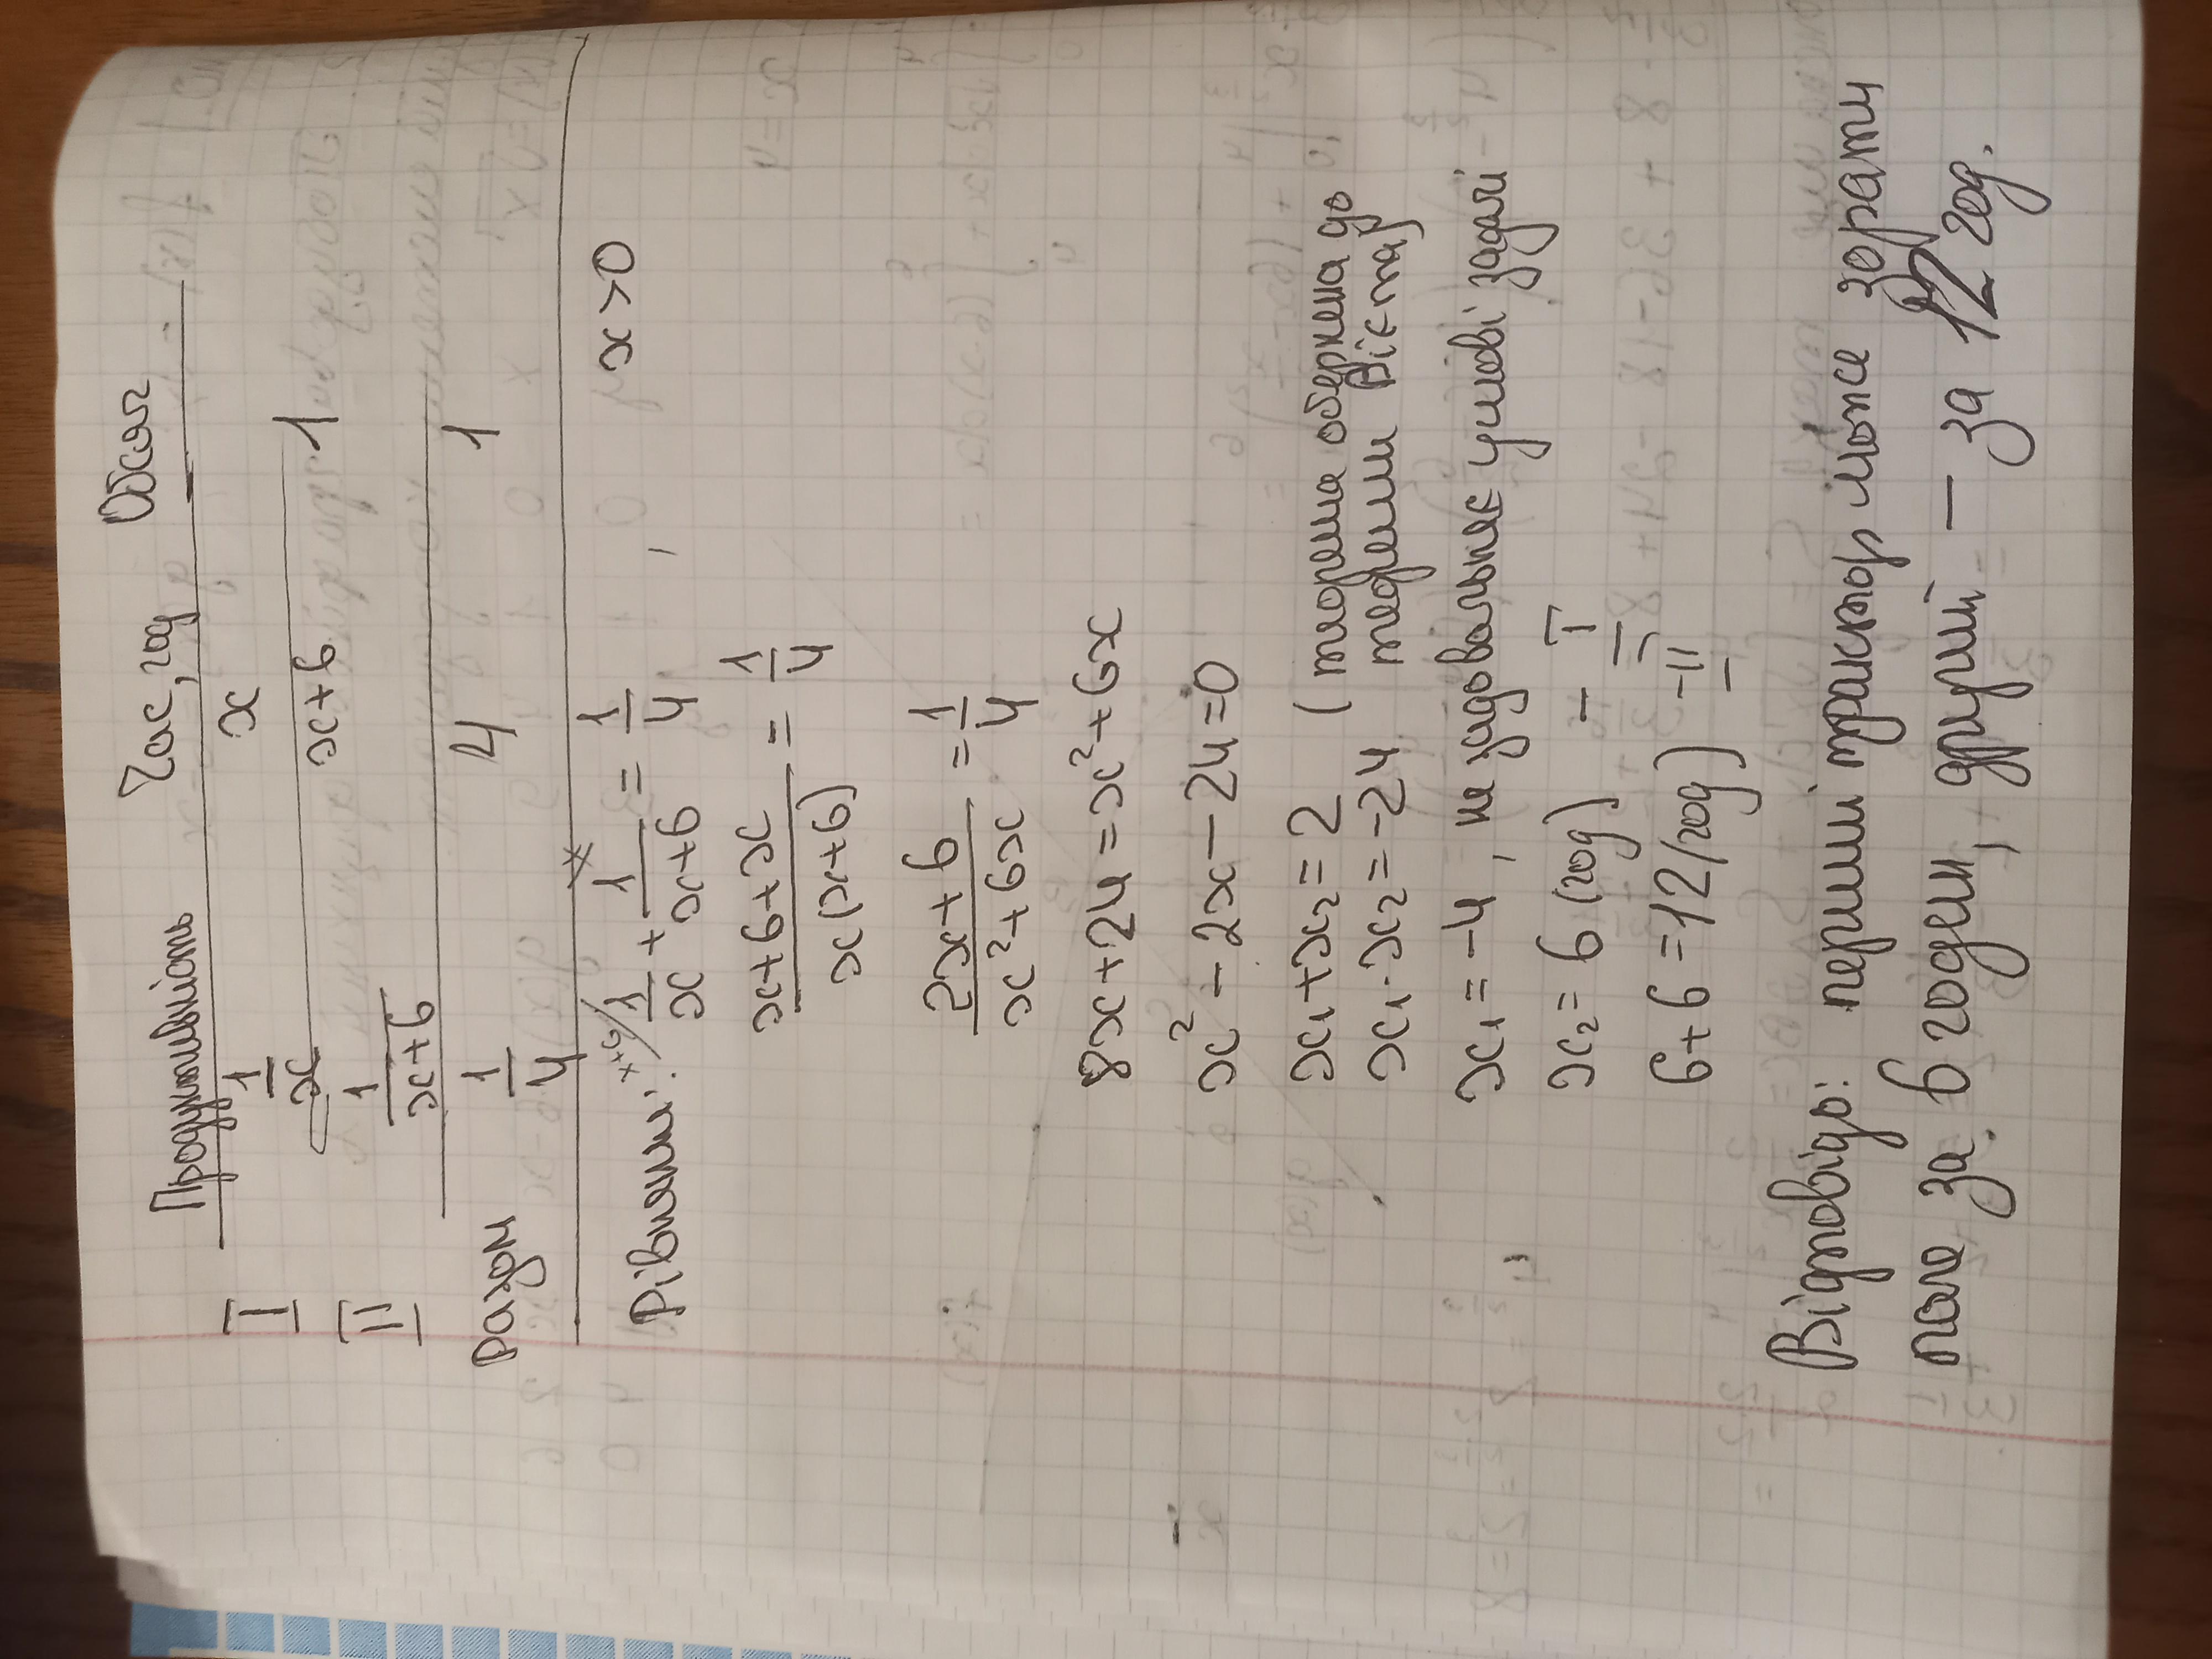 Продуктивність Час, год Обсяг
I 1/x x 1
II 1/(x+6) x+6 1
разом 1/4 4 1
Рівняння: x+6/ 1/x + 1/(x+6) = 1/4, x>0
(x+6+x)/(x(x+6)) = 1/4
(2x+6)/(x²+6x) = 1/4
8x+24=x²+6x
x²-2x-24=0
x₁+x₂=2 (теорема обернена до
x₁·x₂=-24 теореми Вієта)
x₁=-4, не задовольняє умові задачі
x₂=6 (год) - I
6+6=12(год) - II
Відповідь: перший трактор може зорати
поле за 6 годин, другий - за 12 год.